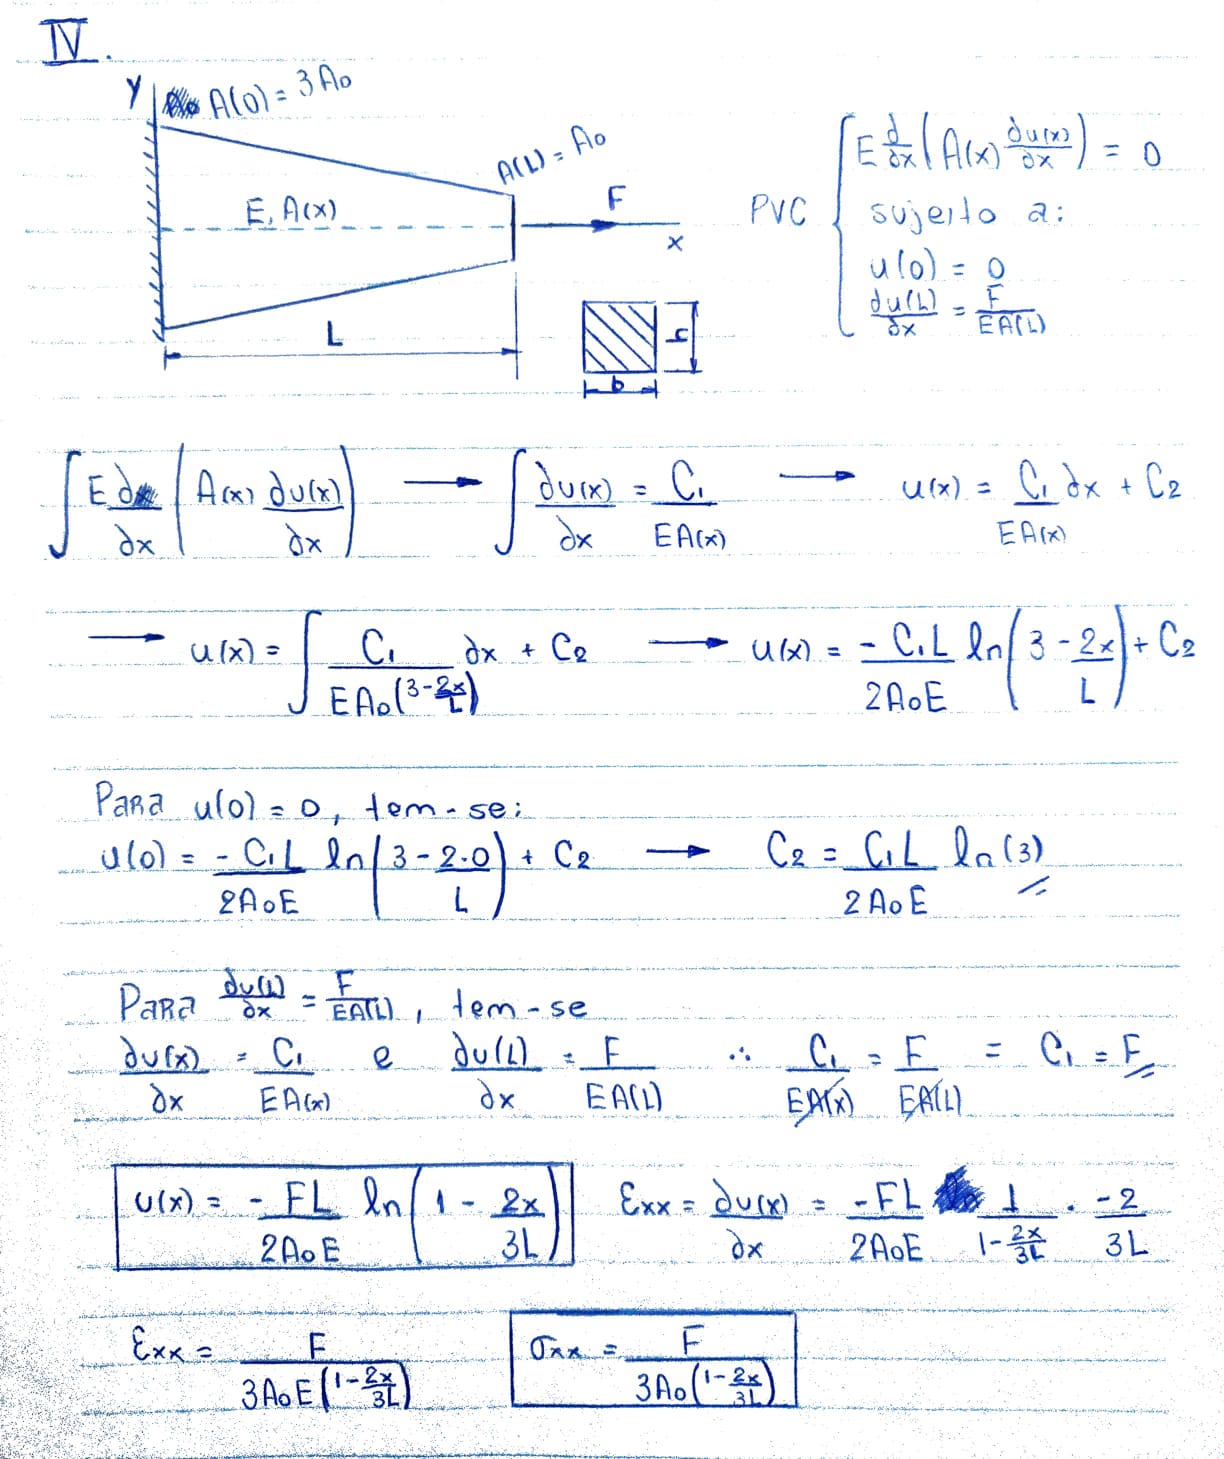 IV.
y A(0) = 3A₀
A(L) = A₀
E, A(x)
F
x
L
h
b
PVC { E ∂/∂x ( A(x) ∂u(x)/∂x ) = 0
sujeito a:
u(0) = 0
∂u(L)/∂x = F/EA(L)
∫ E∂/∂x ( A(x) ∂u(x)/∂x ) → ∫ ∂u(x)/∂x = C₁/EA(x) → u(x) = C₁/EA(x) ∂x + C₂
→ u(x) = ∫ C₁/EA₀(3-2x/L) ∂x + C₂ → u(x) = -C₁L/2A₀E ln( 3 - 2x/L ) + C₂
Para u(0) = 0, tem-se:
u(0) = -C₁L/2A₀E ln( 3 - 2.0/L ) + C₂ → C₂ = C₁L/2A₀E ln(3)
Para ∂u(L)/∂x = F/EA(L), tem-se
∂u(x)/∂x = C₁/EA(x) e ∂u(L)/∂x = F/EA(L) ∴ C₁/EA(x) = F/EA(L) = C₁ = F
u(x) = -FL/2A₀E ln( 1 - 2x/3L ) Ɛxx = ∂u(x)/∂x = -FL/2A₀E 1/1-2x/3L . -2/3L
Ɛxx = F/3A₀E(1-2x/3L) σxx = F/3A₀(1-2x/3L)